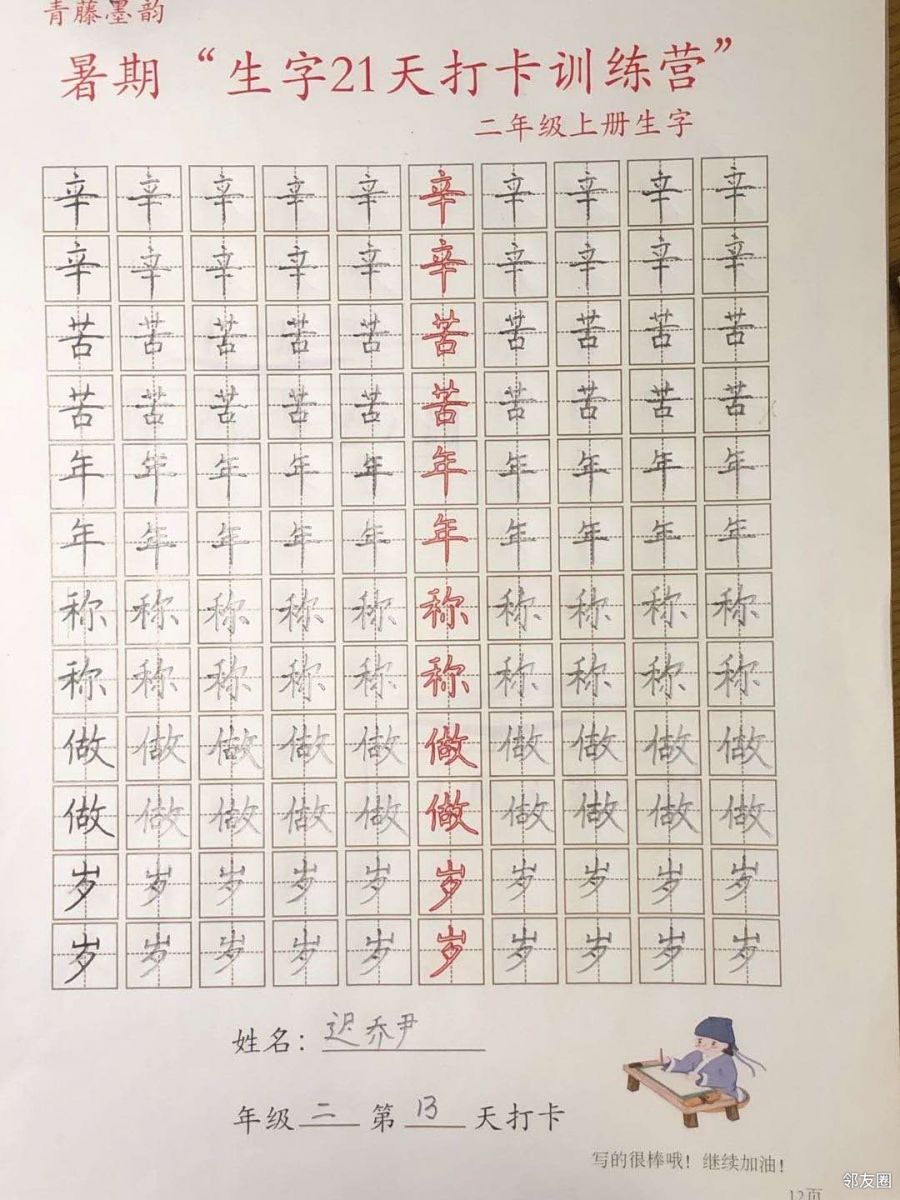 青藤墨韵
暑期“生字21天打卡训练营”
二年级上册生字
辛辛辛辛辛辛辛辛辛辛
辛辛辛辛辛辛辛辛辛辛
苦苦苦苦苦苦苦苦苦苦
苦苦苦苦苦苦苦苦苦苦
年年年年年年年年年年
年年年年年年年年年年
称称称称称称称称称称
称称称称称称称称称称
做做做做做做做做做做
做做做做做做做做做做
岁岁岁岁岁岁岁岁岁岁
岁岁岁岁岁岁岁岁岁岁
姓名：迟乔尹
年级二第13天打卡
写的很棒哦！继续加油！
12页
邻友圈